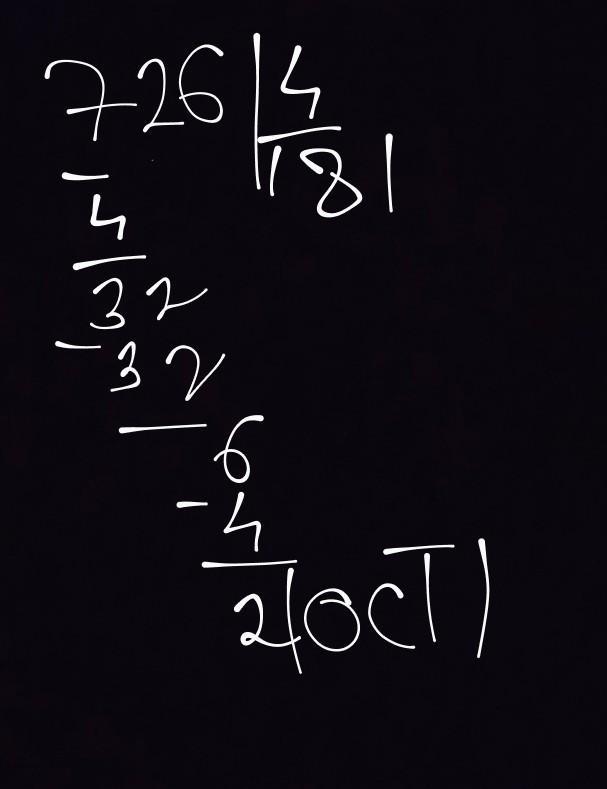 726|4
181
-
4
32
-32
6
-4
2(ОСТ)